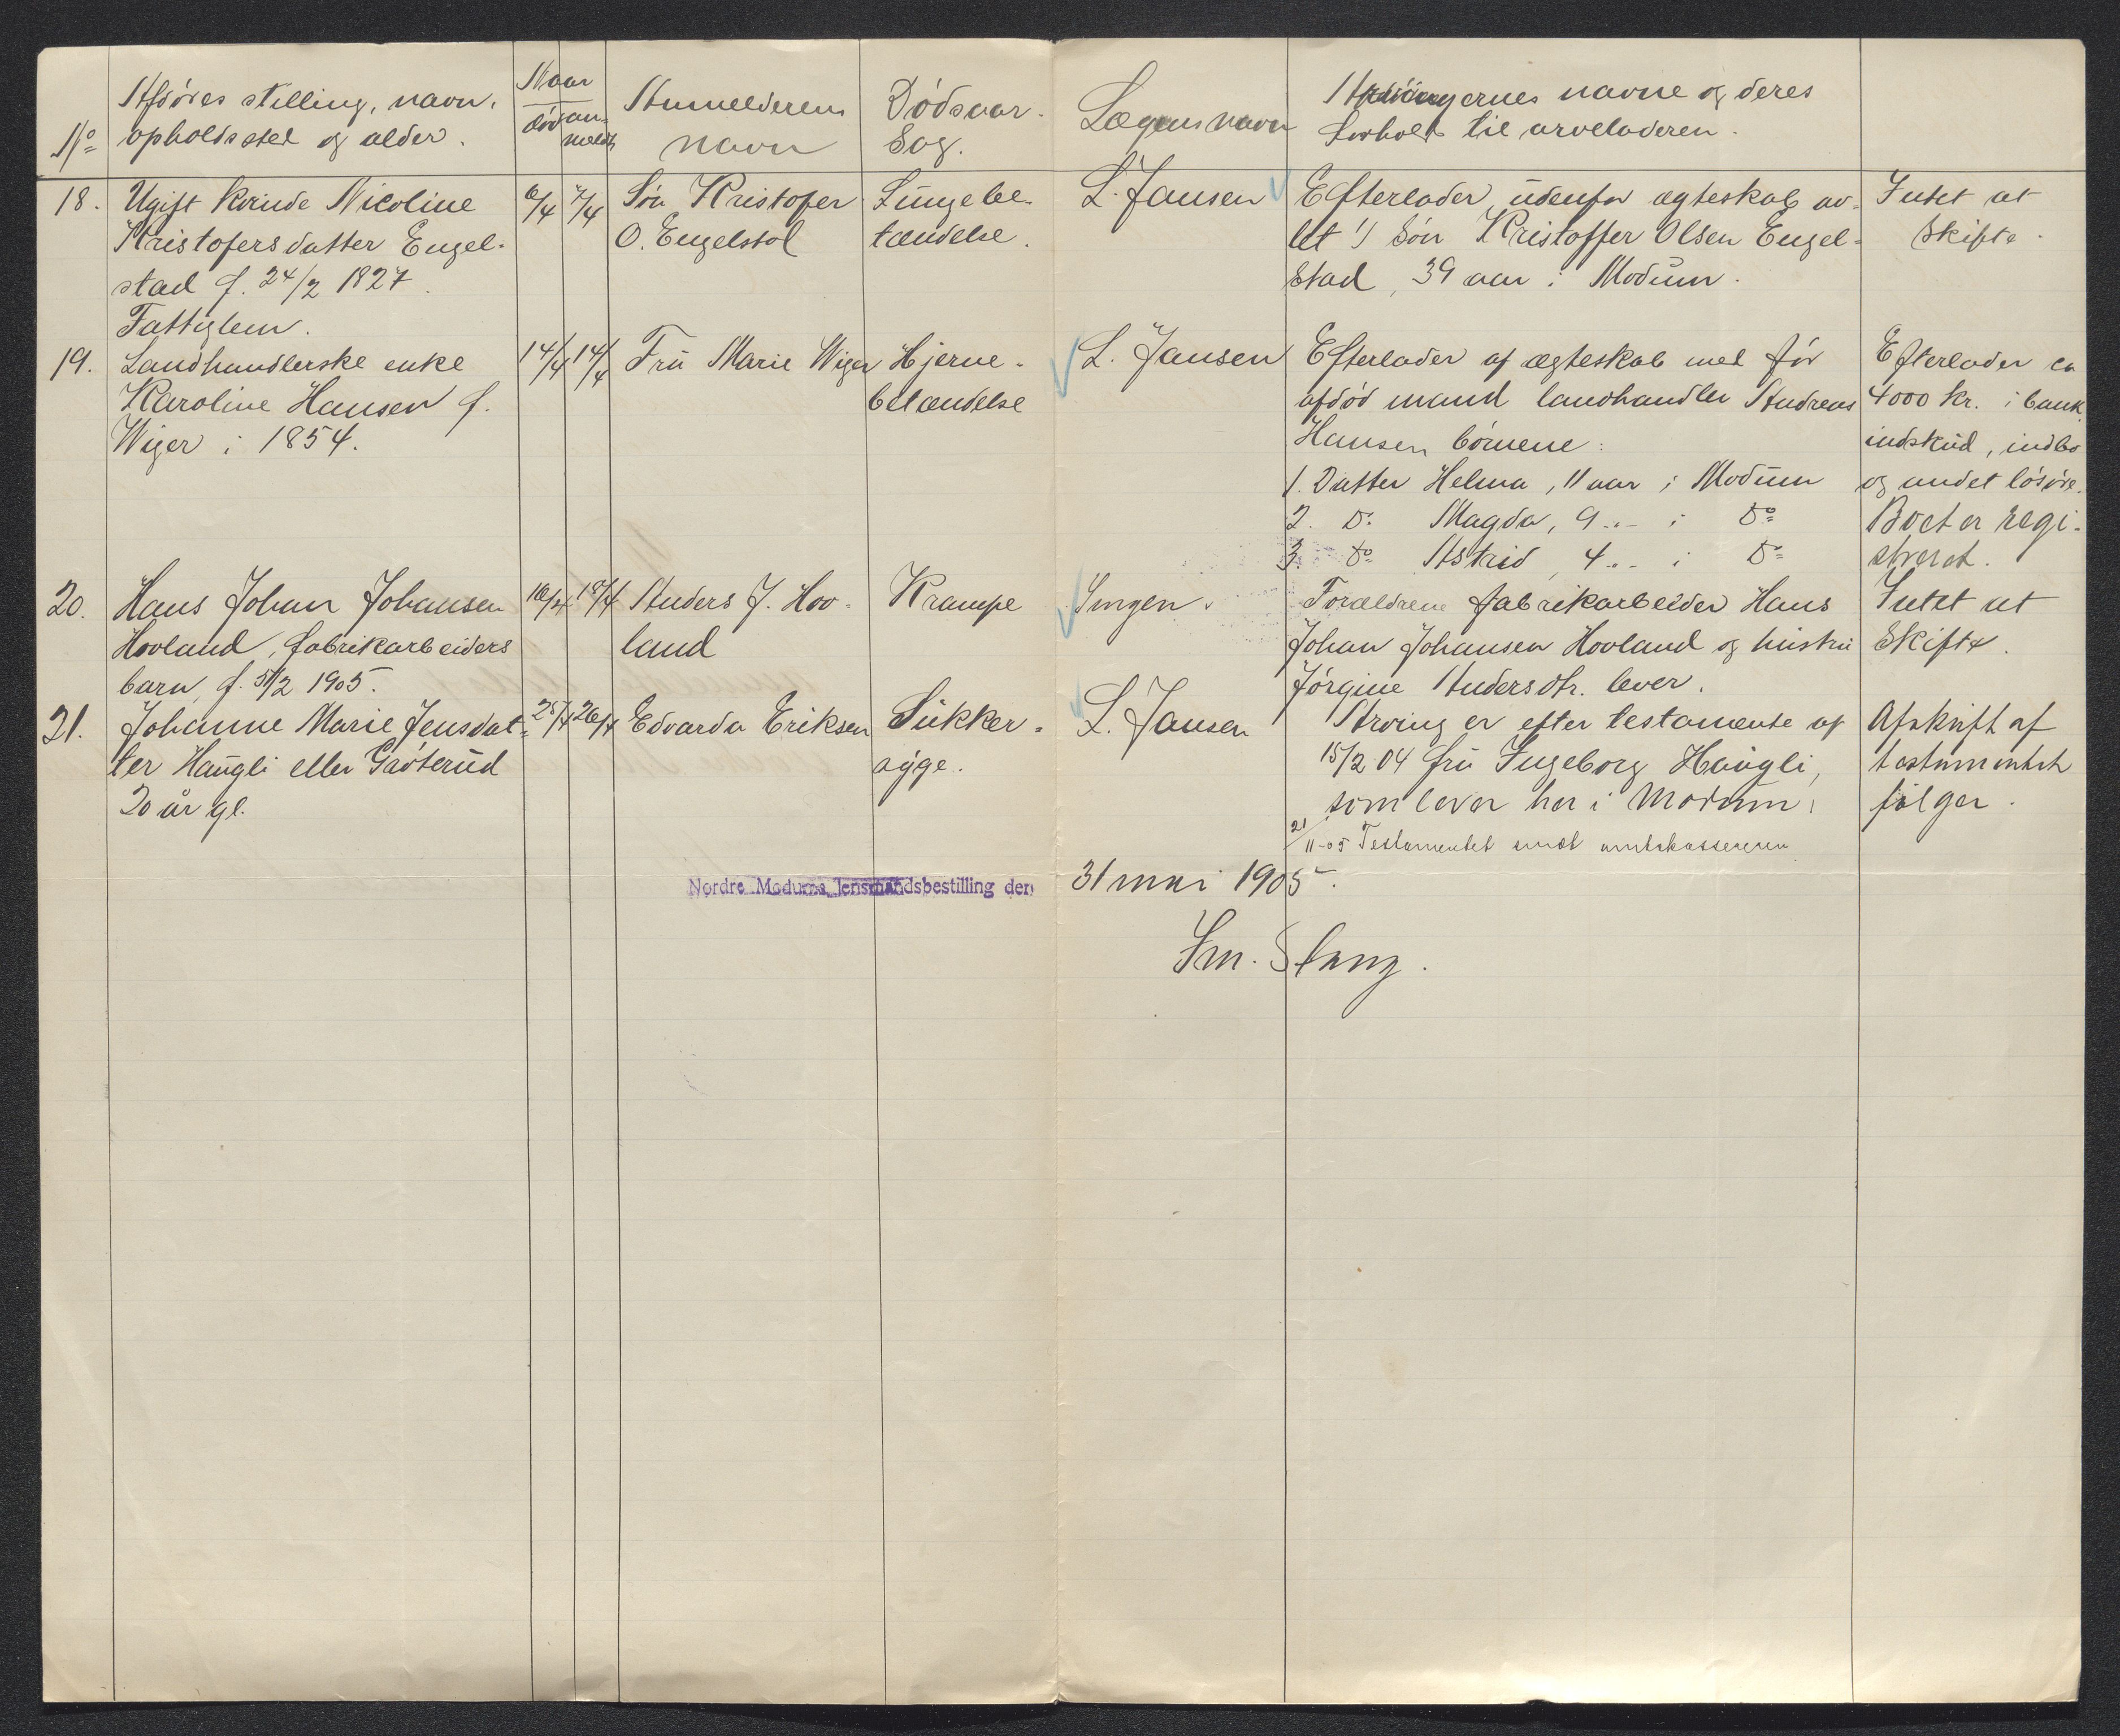 No
Afdødes stilling, navn,
opholdssted og alder.
Naar
død
an-
meldt
Anmelderens
navn
Dødsaar-
sag.
Lægens navn
Arvingernes navne og deres
forhold til arveladeren.
18.
Ugift kvinde Nicoline
Kristofersdatter Engel-
stad f. 24/2 1827.
Fattiglem.
6/4
7/4
Søn Kristofer
O. Engelstad
Lungebe-
tændelse.
L. Jansen
Efterlader udenfor ægteskab av-
let 1) Søn Kristoffer Olsen Engel-
stad, 39 aar i Modum.
Intet at
skifte.
19.
Landhandlerske enke
Karoline Hansen f.
Wiger i 1854.
14/4
14/4
Fru Marie Wiger
Hjerne-
betændelse
L. Jansen
Efterlader af ægteskab med før
afdød mand landhandler Andreas
Hansen børnene:
1. Datter Helma, 11 aar i Modum
2. Do Magda, 9 " - i Do
3. Do Astrid, 4 " - i Do
Efterlader ca
4000 kr. i bank
indskud, indbo
og andet løsøre.
Boet er regi-
streret.
20.
Hans Johan Johansen
Hovland, fabrikarbeiders
barn, f. 5/2 1905.
16/4
18/4
Anders J. Hov-
land
Krampe
Ingen.
Forældrene fabrikarbeider Hans
Johan Johansen Hovland og hustru
Jørgine Andersdtr. lever.
Intet at
skifte.
21.
Johanne Marie Jensdat-
ter Haugli eller Grøterud
20 år gl.
25/4
26/4
Edvarda Eriksen
Sukker-
syge.
L. Jansen
Arving er efter testamente af
15/2 04 fru Ingeborg Haugli,
som lever her i Modum.
21/11-05 Testamentet sendt amtskassereren
Afskrift af
testamentet
følger.
Nordre Modums lensmandsbestilling den 31 mai 1905.
Sm. Stang.